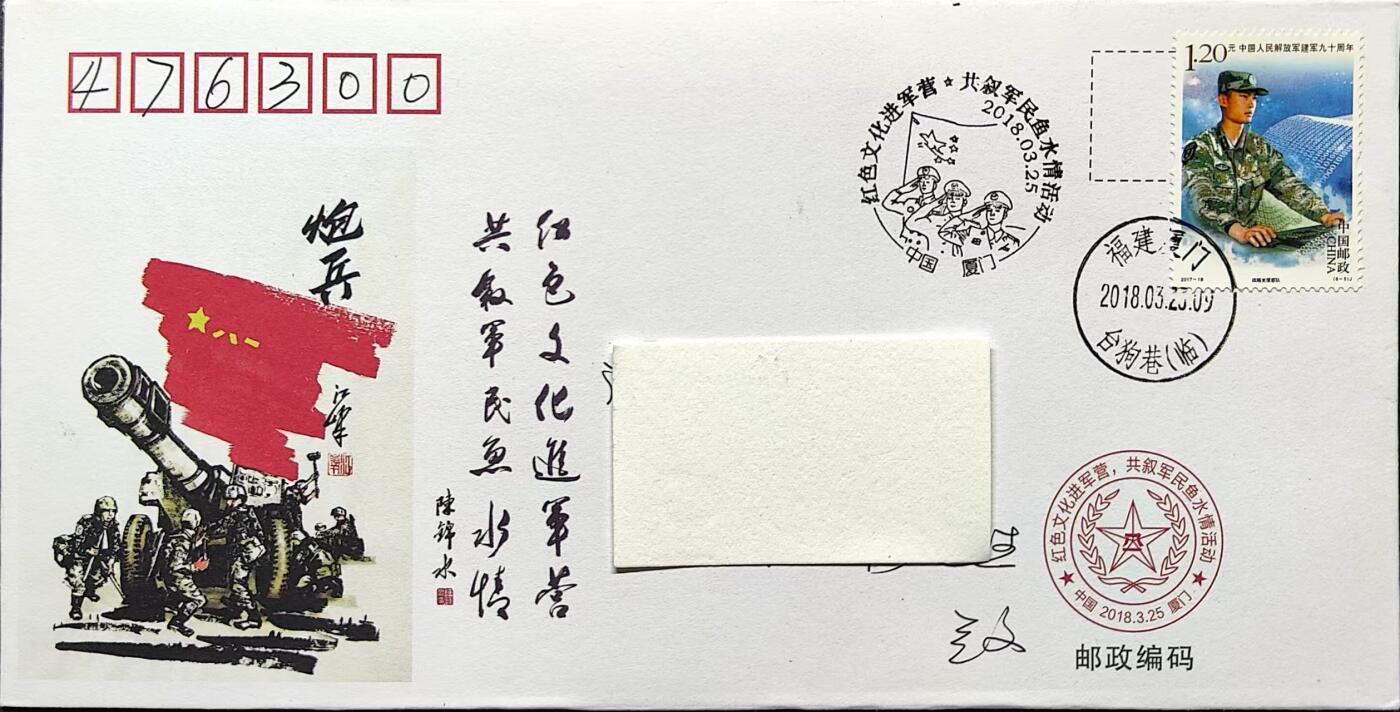 476300
1.20元 中国人民解放军建军九十周年
中国邮政
CHINA
2017-18
战略支援部队
(5-5)J
红色文化进军营☆共叙军民鱼水情活动
2018.03.25
中国 厦门
福建 厦门
2018.03.25.09
台狗巷(临)
炮兵
八一
红色文化進军营
共叙军民鱼水情
陳錦水
红色文化进军营,共叙军民鱼水情活动
中国 2018.3.25 厦门
八一
邮政编码